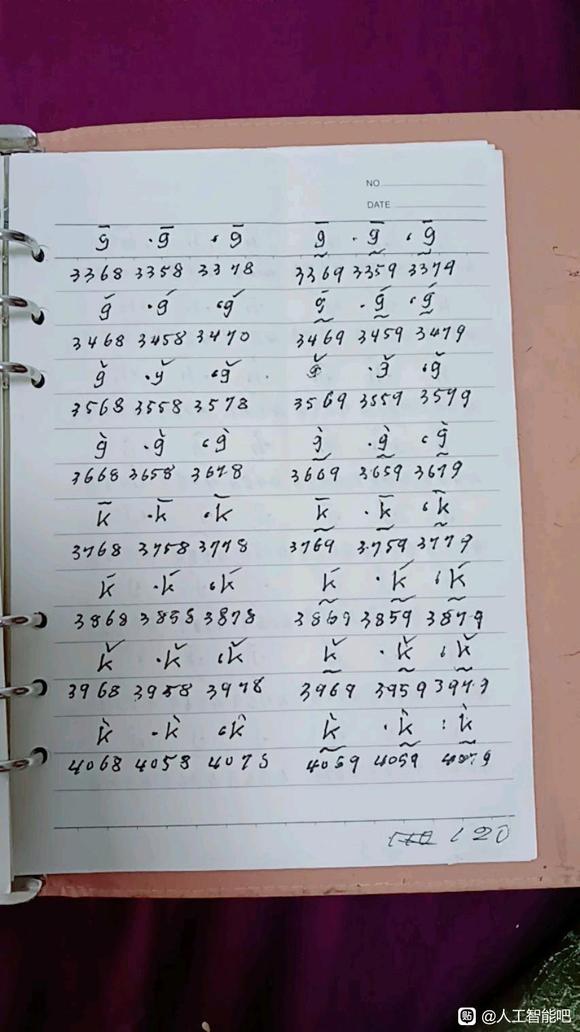 NO
DATE
ḡ ·ḡ ‘ḡ ḡ̰ ·ḡ̰ ‘ḡ̰
3368 3358 3378 3369 3359 3379
ǵ ·ǵ ‘ǵ ǵ̰ ·ǵ̰ ‘ǵ̰
3468 3458 3470 3469 3459 3479
ǧ ·y̌ ‘ǧ ·ǧ ‘ǧ
3568 3558 3578 3569 3559 3579
g̀ ·g̀ ‘g̀ g̰̀ ·g̰̀ ‘g̰̀
3668 3658 3678 3669 3659 3679
k̄ ·k̄ ‘k̄ k̰̄ ·k̰̄ ‘k̰̄
3768 3758 3778 3769 3759 3779
ḱ ·ḱ ‘ḱ ḵ́ ·ḵ́ ‘ḵ́
3868 3858 3878 3869 3859 3879
ǩ ·ǩ ‘ǩ ǩ̰ ·ǩ̰ ‘ǩ̰
3968 3958 3978 3969 3959 3979
k̀ ·k̀ ‘k̀ k̰̀ ·k̰̀ :k̰̀
4068 4058 4075 4059
120
贴 @人工智能吧